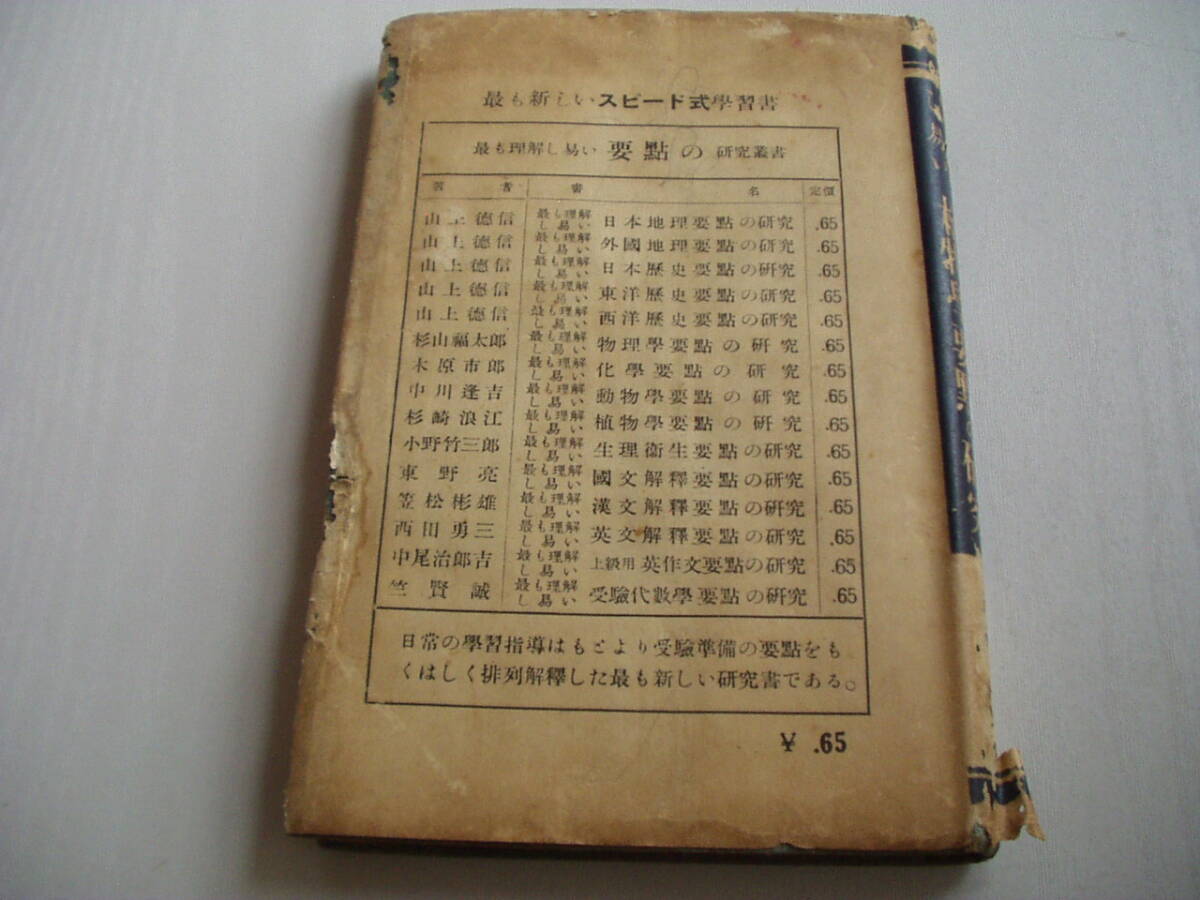 最も新しいスピード式學習書
最も理解し易い 要點の 研究叢書
著者 書名 定價
山上德信 最も理解し易い 日本地理要點の研究 .65
山上德信 最も理解し易い 外國地理要點の研究 .65
山上德信 最も理解し易い 日本歷史要點の研究 .65
山上德信 最も理解し易い 東洋歷史要點の研究 .65
山上德信 最も理解し易い 西洋歷史要點の研究 .65
杉山福太郎 最も理解し易い 物理學要點の研究 .65
木原市郎 最も理解し易い 化學要點の研究 .65
中川逢吉 最も理解し易い 動物學要點の研究 .65
杉崎浪江 最も理解し易い 植物學要點の研究 .65
小野竹三郎 最も理解し易い 生理衞生要點の研究 .65
東野亮 最も理解し易い 國文解釋要點の研究 .65
笠松彬雄 最も理解し易い 漢文解釋要點の研究 .65
西田勇三 最も理解し易い 英文解釋要點の研究 .65
中尾治郎吉 最も理解し易い 上級用 英作文要點の研究 .65
竺賢誠 最も理解し易い 受驗代數學要點の研究 .65
日常の學習指導はもとより受驗準備の要點をも
くはしく排列解釋した最も新しい研究書である。
¥ .65
易い 植物學要點の研究